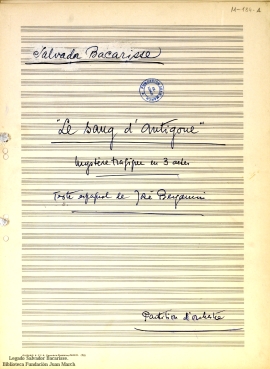 Salvador Bacarisse
"Le Sang d'Antigone"
Mystère tragique en 3 actes
Texte espagnol de José Bergamín
Partition d'orchestre
Legado Salvador Bacarisse.
Biblioteca Fundación Juan March